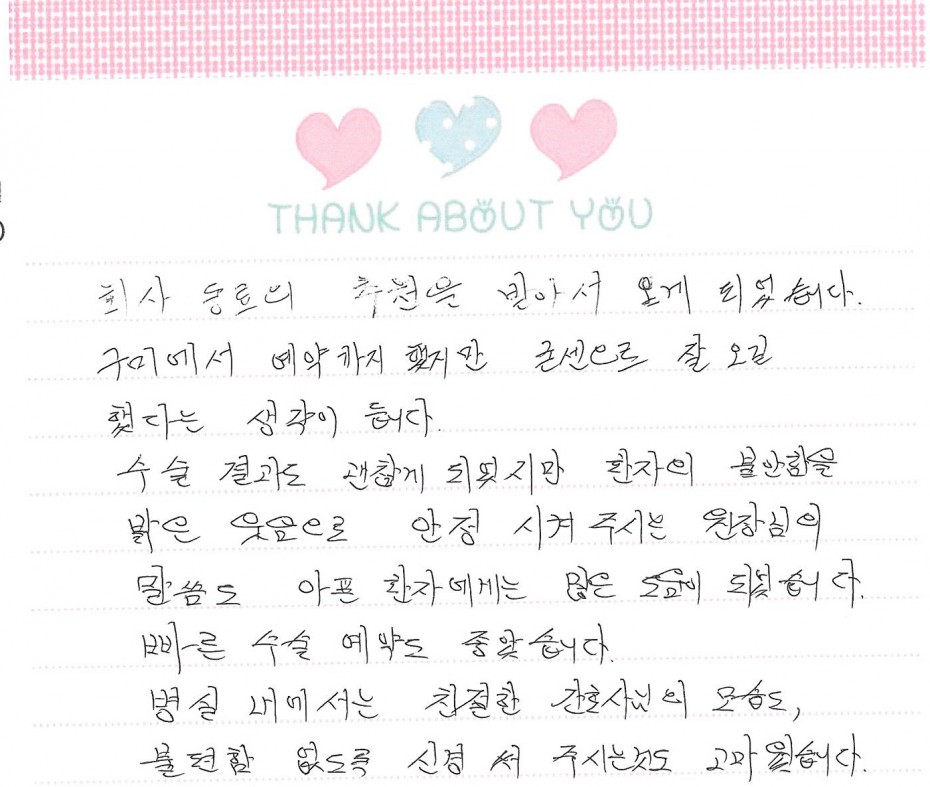 THANK ABOUT YOU
회사 동료의 추천을 받아서 오게 되었습니다.
구미에서 예약까지 했지만 굿센으로 잘 오길
했다는 생각이 듭니다.
수술 결과도 괜찮게 되었지만 환자의 불안함을
밝은 웃음으로 안정 시켜 주시는 원장님의
말씀도 아픈 환자에게는 많은 도움이 되었습니다.
빠른 수술 예약도 좋았습니다.
병실 내에서는 친절한 간호사님의 모습도,
불편함 없도록 신경 써 주시는것도 고마웠습니다.